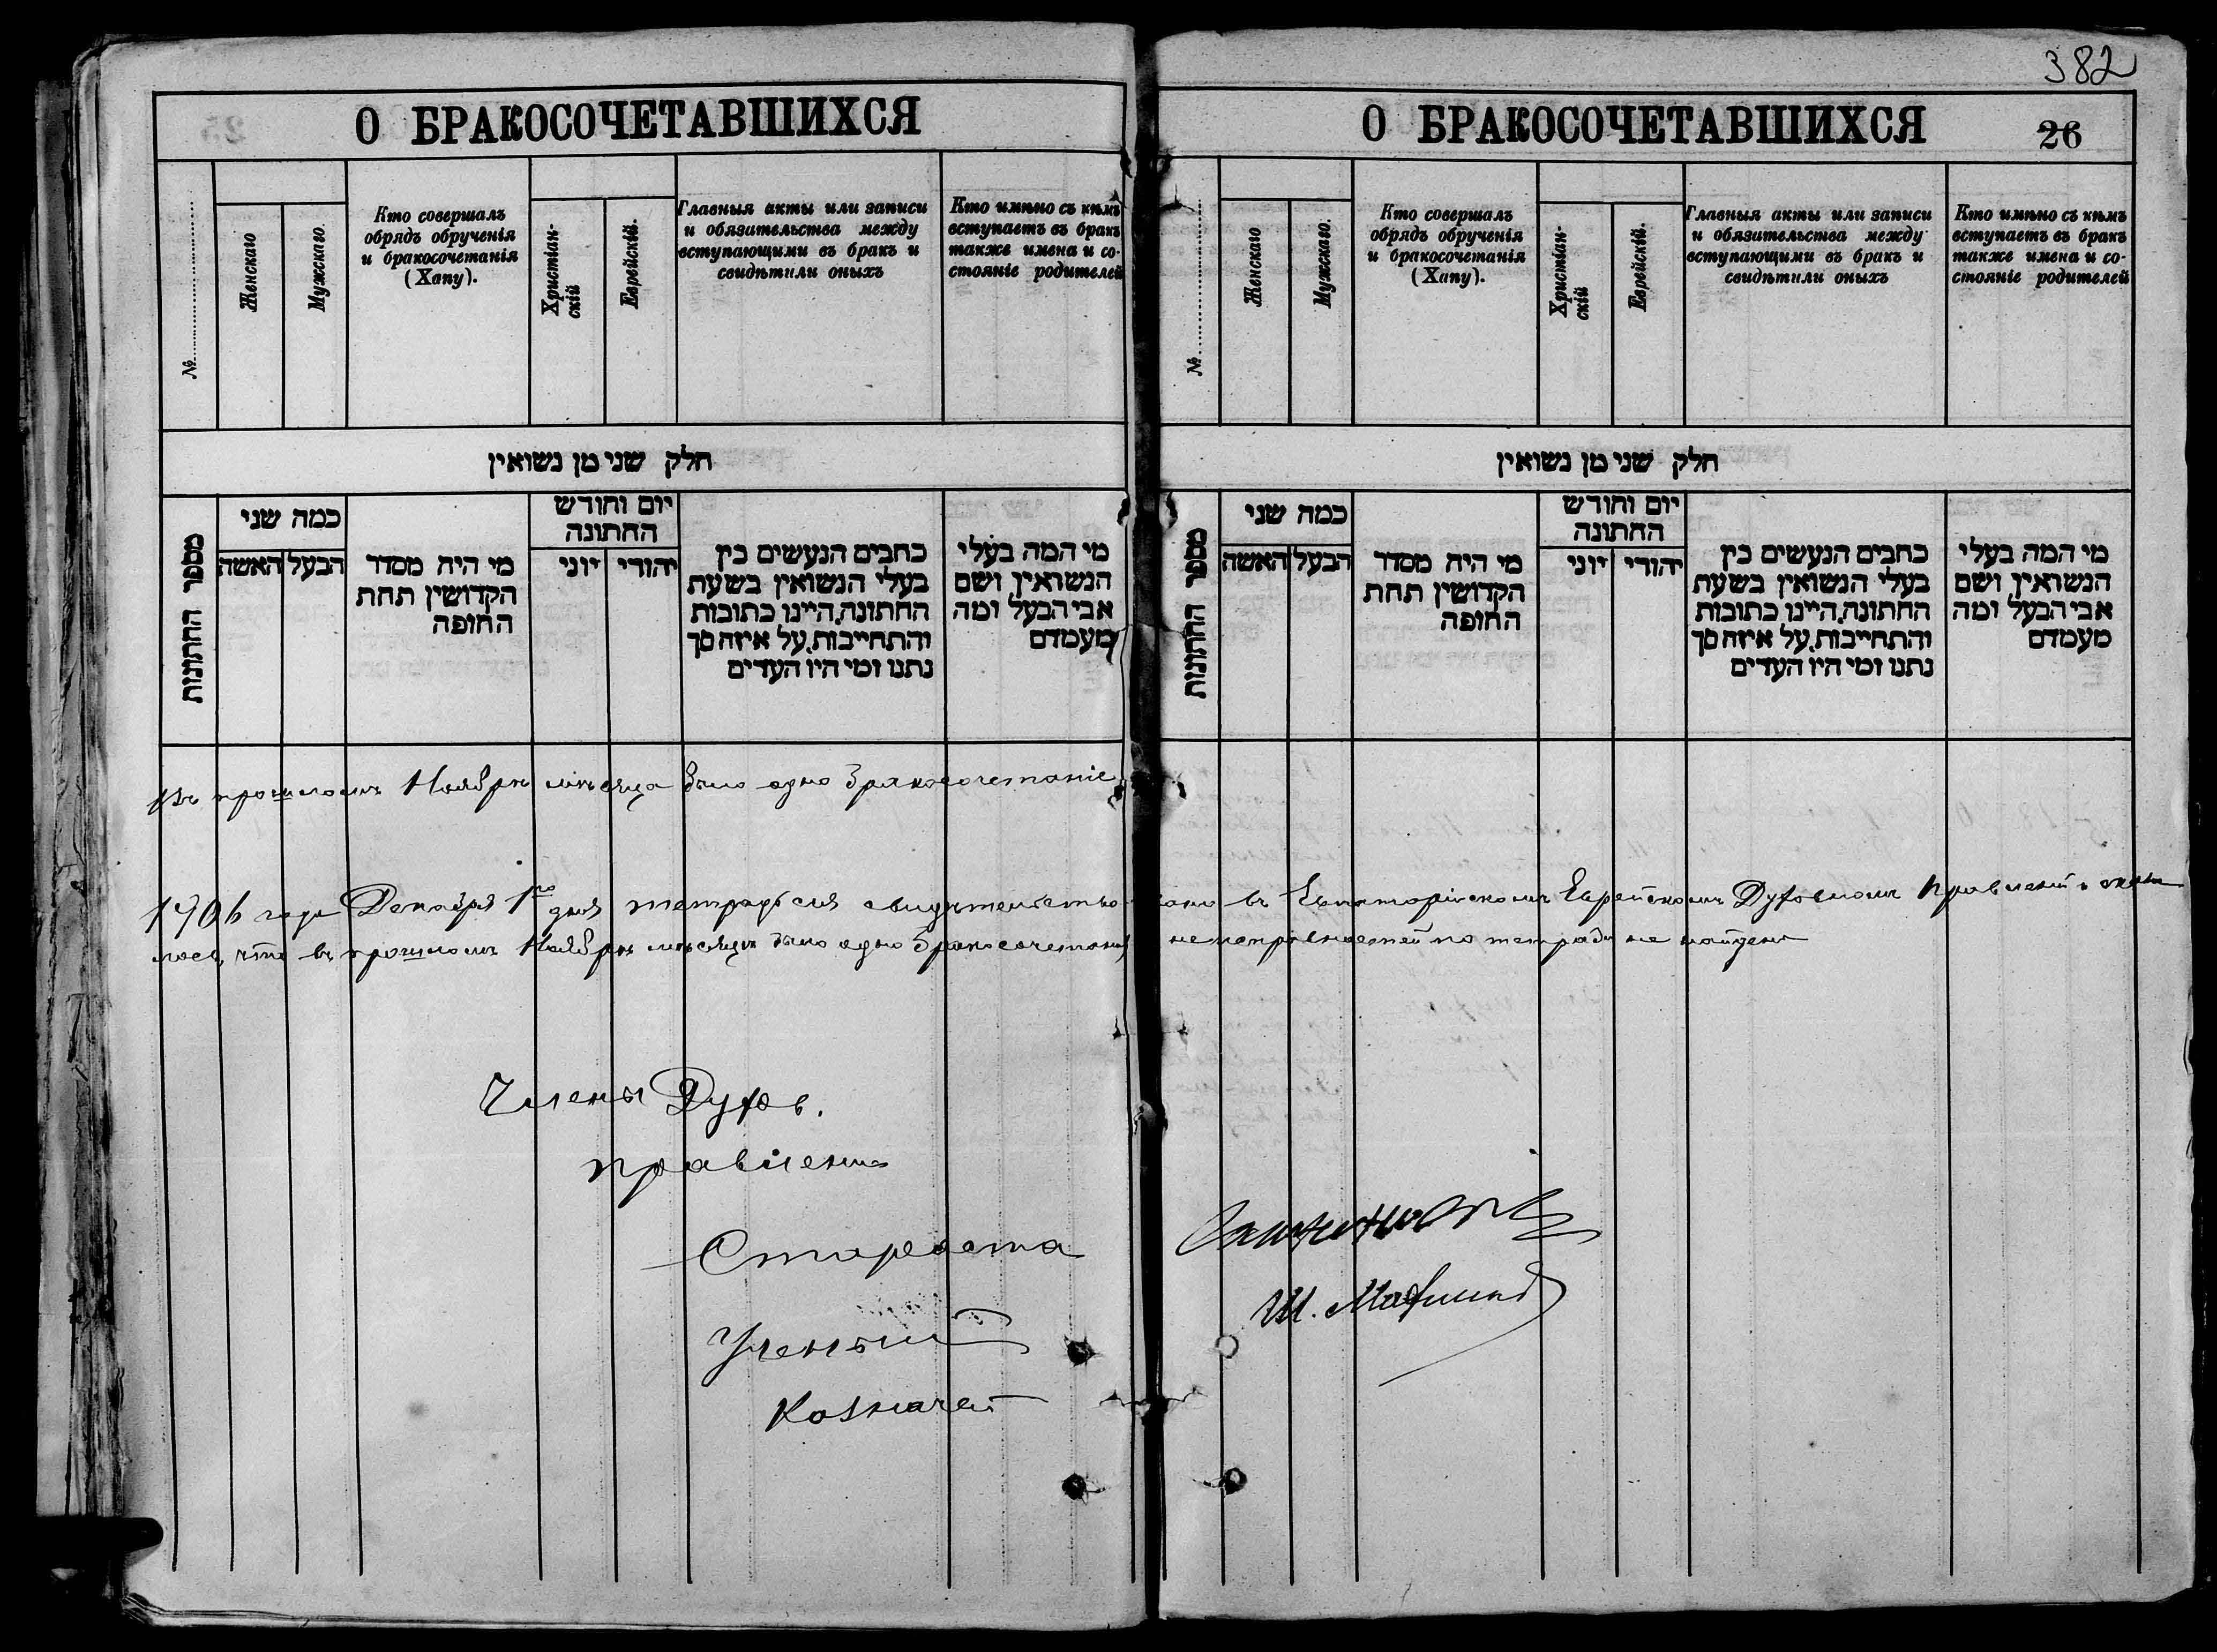 382
О БРАКОСОЧЕТАВШИХСЯ
№
Женскаго
Мужскаго.
Кто совершалъ
обрядъ обрученія
и бракосочетанія
(Хапу).
Христіан-
скій
Еврейскій.
Главныя акты или записи
и обязательства между
вступающими въ бракъ и
свидѣтили оныхъ
Кто имѣно съ кѣмъ
вступаетъ въ бракъ
также имена и со-
стояніе родителей
חלק שני מן נשואין
מספר החתונות
כמה שני
האשה
הבעל
מי היה מסדר
הקדושין תחת
החופה
יום וחודש
החתונה
יוני
יהודי
כתבים הנעשים בין
בעלי הנשואין בשעת
החתונה, היינו כתובות
והתחייבות, על איזה סך
נתנו ומי היו העדים
מי המה בעלי
הנשואין ושם
אבי הבעל ומה
מעמדם
О БРАКОСОЧЕТАВШИХСЯ
26
№
Женскаго
Мужскаго.
Кто совершалъ
обрядъ обрученія
и бракосочетанія
(Хапу).
Христіан-
скій
Еврейскій.
Главныя акты или записи
и обязательства между
вступающими въ бракъ и
свидѣтили оныхъ
Кто имѣно съ кѣмъ
вступаетъ въ бракъ
также имена и со-
стояніе родителей
חלק שני מן נשואין
מספר החתונות
כמה שני
האשה
הבעל
מי היה מסדר
הקדושין תחת
החופה
יום וחודש
החתונה
יוני
יהודי
כתבים הנעשים בין
בעלי הנשואין בשעת
החתונה, היינו כתובות
והתחייבות, על איזה סך
נתנו ומי היו העדים
מי המה בעלי
הנשואין ושם
אבי הבעל ומה
מעמדם
Въ прошломъ Ноябрѣ мѣсяца было одно бракосочетаніе
1906 года Декабря 1го дня тетрадь сія свидѣтельствована въ Евпаторійскомъ Еврейскомъ Духовномъ Правленіи и оказа
лось, что въ прошломъ Ноябрѣ мѣсяцѣ было одно бракосочетаніе, неисправностей по тетради не найдено
Члены Духов.
правленія
Староста
Ученый
Ш.
Казначей